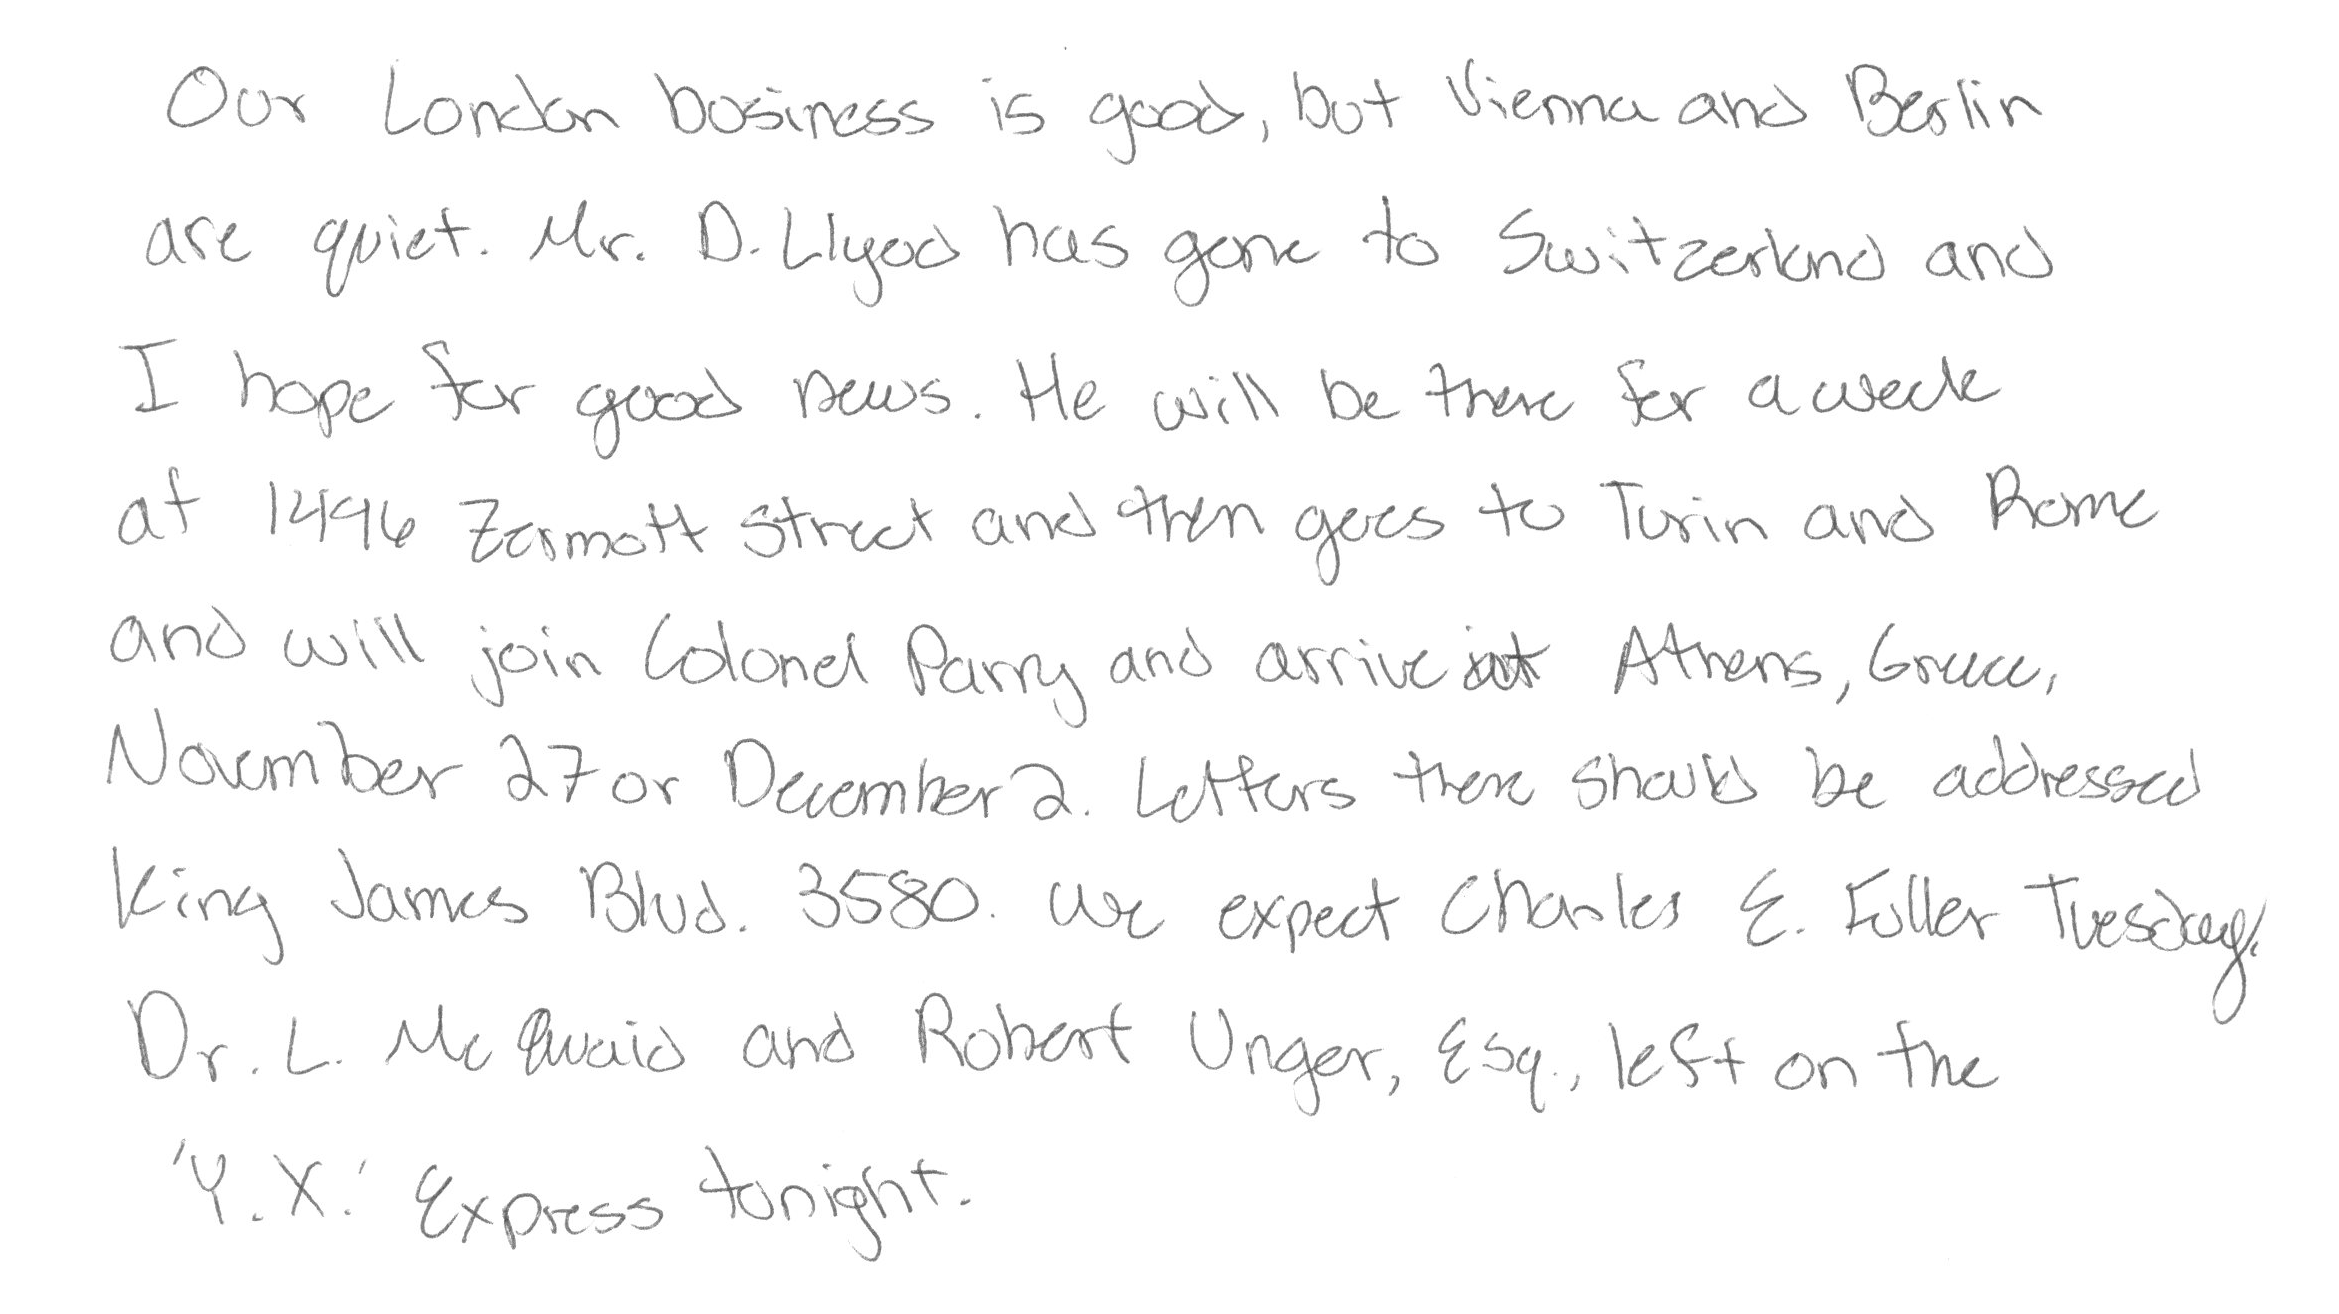 Our London business is good, but Vienna and Berlin
are quiet. Mr. D. Llyod has gone to Switzerland and
I hope for good news. He will be there for a week
at 1496 Zermott street and then goes to Turin and Rome
and will join Colonel Parry and arrive at Athens, Greece,
November 27 or December 2. Letters there should be addressed
King James Blvd. 3580. We expect Charles E. Fuller Tuesday.
Dr. L. McQuaid and Robert Unger, Esq., left on the
'Y.X.' Express tonight.